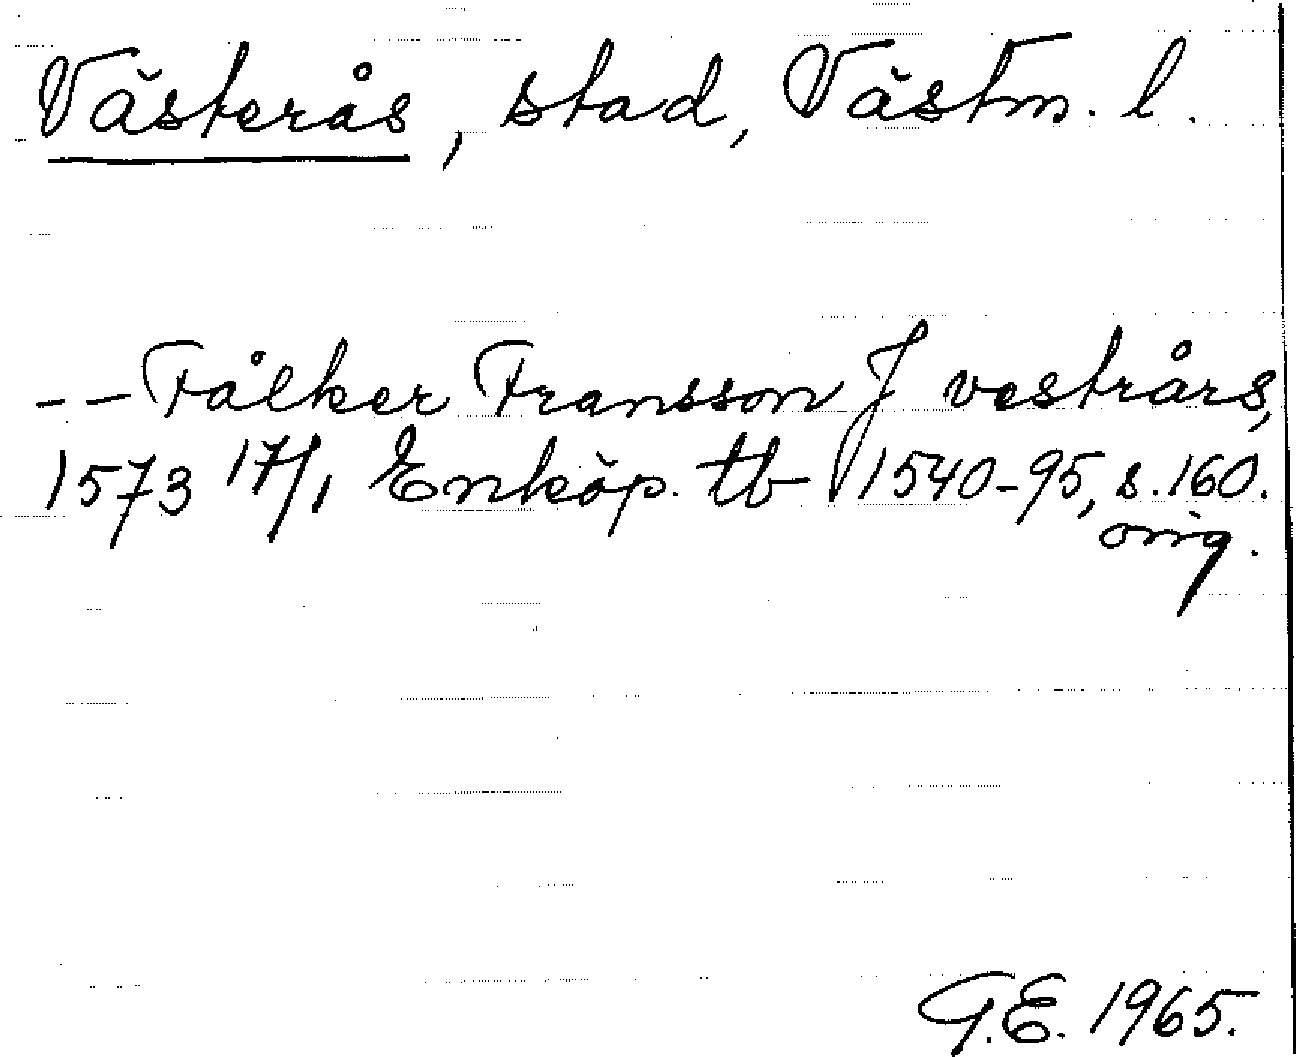 Västerås, stad, Västm. l.
-- Fålker Fransson J vestrårs,
1573 17/1 Enköp. tb 1540-95, s. 160.
orig.
G.E. 1965.